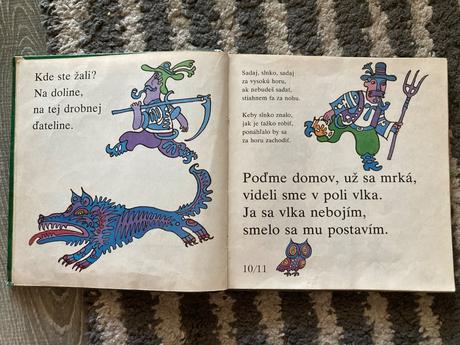 Kde ste žali?
Na doline,
na tej drobnej
ďateline.
Sadaj, slnko, sadaj
za vysokú horu,
ak nebudeš sadať,
stiahnem ťa za nohu.
Keby slnko znalo,
jak je ťažko robiť,
ponáhľalo by sa
za horu zachodiť.
Poďme domov, už sa mrká,
videli sme v poli vlka.
Ja sa vlka nebojím,
smelo sa mu postavím.
10/11